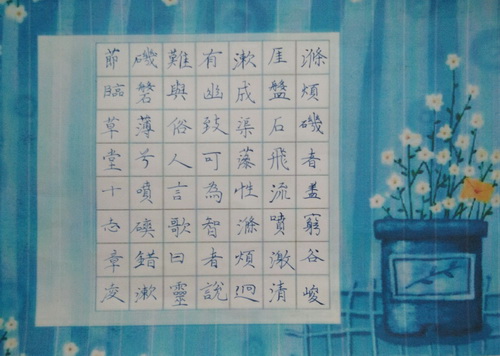 滌煩磯者盖窮谷峻
厓盤石飛流噴激清
漱成渠藻性滌煩迥
有幽致可為智者說
難與俗人言歌曰靈
磯磐薄兮噴錯漱
節臨草堂十志章凌